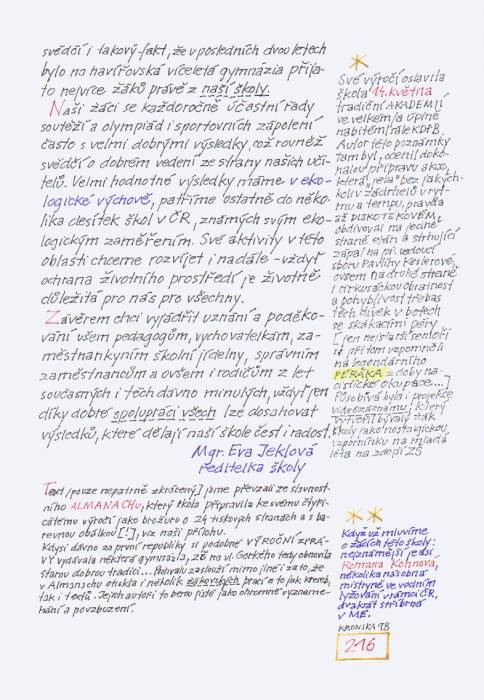 svědčí i takový fakt, že v posledních dvou letech
bylo na havířovská víceletá gymnázia přija-
to nejvíce žáků právě z naší školy.
Naši žáci se každoročně účastní řady
soutěží a olympiád i sportovních zápolení
často s velmi dobrými výsledky, což rovněž
svědčí o dobrém vedení ze strany našich uči-
telů. Velmi hodnotné výsledky máme v eko-
logické výchově, patříme ostatně do něko-
lika desítek škol v ČR, známých svým eko-
logickým zaměřením. Své aktivity v této
oblasti chceme rozvíjet i nadále - vždyť
ochrana životního prostředí je životně
důležitá pro nás pro všechny.
Závěrem chci vyjádřit uznání a poděko-
vání všem pedagogům, vychovatelkám, za-
městnankyním školní jídelny, správním
zaměstnancům a ovšem i rodičům z let
současných i těch dávno minulých, vždyť jen
díky dobré spolupráci všech lze dosahovat
výsledků, které dělají naší škole čest i radost.
Mgr. Eva Jeklová
ředitelka školy
Text [pouze nepatrně zkrácený] jsme převzali ze slavnost-
ního ALMANACHu, který škola připravila ke svému čtyři-
cátému výročí jako brožuru o 24 tiskových stranách a s ba-
revnou obálkou [!], viz naši přílohu.
Kdysi dávno za první republiky si podobné VÝROČNÍ ZPRÁ-
VY vydávala některá gymnázia, ZŠ na ul. Gorkého tedy obnovila
starou dobrou tradici... Pochvalu zaslouží mimo jiné i za to, že
v Almanachu otiskla i několik žákovských prací a to jak kreseb,
tak i textů. Jejich autoři to berou jistě jako ohromné vyzname-
nání a povzbuzení.
*
Své výročí oslavila
škola 14. května
tradiční AKADEMIÍ
ve velkém /a úplně
nabitém/ sále KDPB.
Autor této poznámky
tam byl, ocenil doko-
nalou přípravu akce,
která "jela" bez jakých-
koliv zádrhelů v ryt-
mu a tempu, pravda
až DISKOTÉKOVÉM,
obdivoval na jedné
straně elán a strhující
zápal na př. vedoucí
sboru Pavlíny Keslerové,
ovšem na druhé straně
i cirkusáckou obratnost
a pohyblivost třebas
těch dívek v botech
se skákacími péry
[jen nejstarší senioři
si přitom vzpomněli
na legendárního
PÉRÁKA z doby na-
cistické okupace...]
Působivá byla i projekce
videozáznamu, který
vytvořil bývalý žák
školy jako nostalgickou
vzpomínku na mladá
léta na zdejší ZŠ
**
Když už mluvíme
o žácích této školy:
nejznámější je asi
Romana Kohnová,
několikanásobná
mistryně ve vodním
lyžování v rámci ČR,
dvakrát stříbrná
v ME.
KRONIKA 98
216